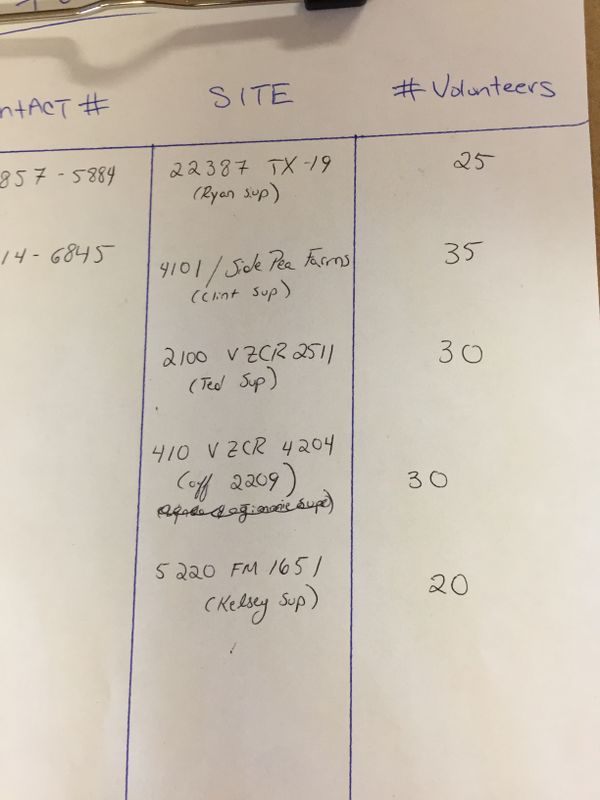 ntACT # SITE # Volunteers
857-5884 22387 TX-19 25
(Ryan Sup)
14-6845 4101/Side Pea Farms 35
(Clint Sup)
2100 VZCR 2511 30
(Ted Sup)
410 VZCR 4204
(off 2209) 30
5220 FM 1651 20
(Kelsey Sup)